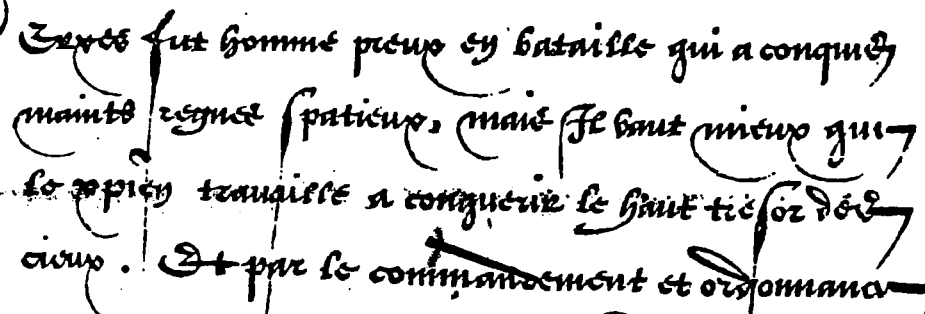 Erxes fut homme preux en bataille qui a conquis
maints regnes spatieux, mais Il vaut mieux que
le xpien travaille a conquerir le hault tresor des
cieux. Et par le commandement et ordonnance